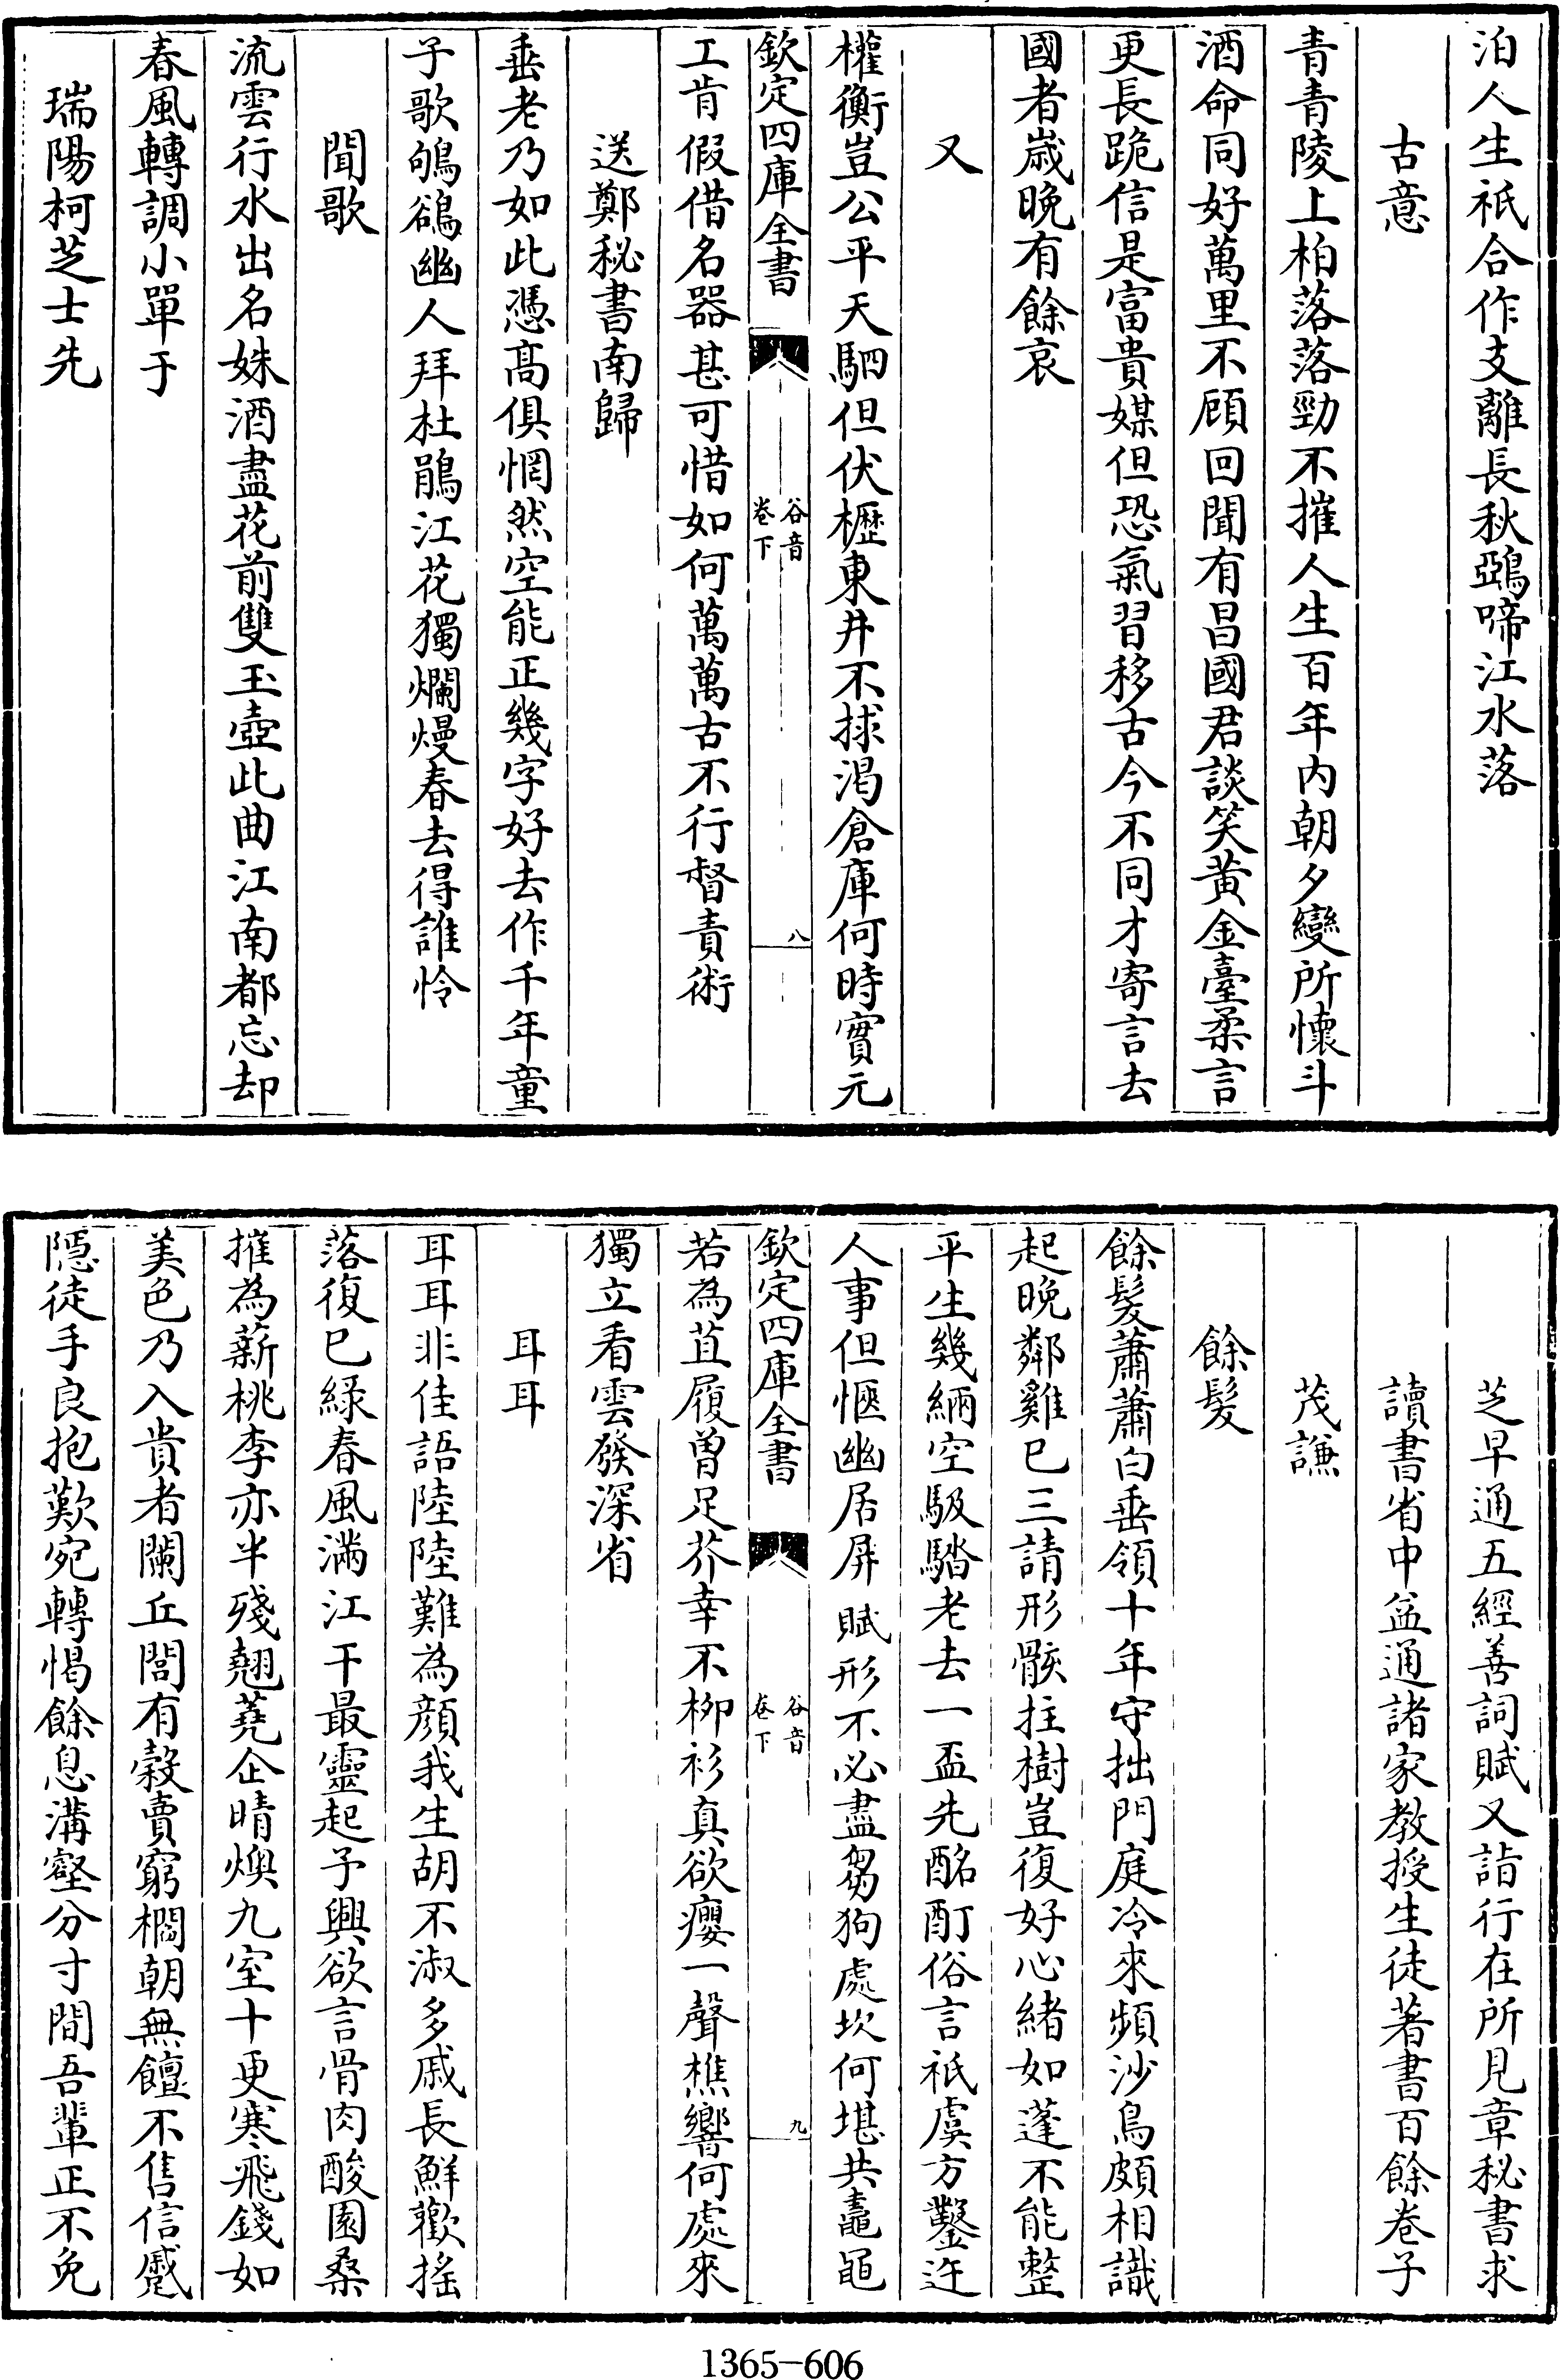 泊人生祇合作支離長秋鵶啼江水落
古意
青青陵上柏落落勁不摧人生百年内朝夕變所懷斗
酒命同好萬里不顧回聞有昌國君談笑黄金臺柔言
更長跪信是富貴媒但恐氣習移古今不同才寄言去
國者嵗晚有餘哀
又
權衡豈公平天駟但伏櫪東井不捄渴倉庫何時實元
欽定四庫全書
谷音
卷下
八
工肯假借名器甚可惜如何萬萬古不行督責術
送鄭秘書南歸
垂老乃如此憑髙俱惘然空能正幾字好去作千年童
子歌鴝鵒幽人拜杜鵑江花獨爛熳春去得誰怜
聞歌
流雲行水出名姝酒盡花前雙玉壺此曲江南都忘却
春風轉調小單于
瑞陽柯芝士先
芝早通五經善詞賦又詣行在所見章秘書求
讀書省中盆通諸家教授生徒著書百餘卷子
茂謙
餘髮
餘髮蕭蕭白垂領十年守拙門庭冷來頻沙鳥頗相識
起晚鄰雞巳三請形骸拄樹豈復好心緒如蓬不能整
平生幾緉空馺䠱老去一盃先酩酊俗言祇虞方鑿迕
人事但愜幽居屏賦形不必盡芻狗處坎何堪共鼃黽
欽定四庫全書
谷音
卷下
九
若為苴履曽足芥幸不栁衫真欲癭一聲樵響何處來
獨立看雲發深省
耳耳
耳耳非佳語陸陸難為顔我生胡不淑多戚長鮮歡揺
落復巳緑春風滿江干最靈起予興欲言骨肉酸園桑
摧為薪桃李亦半殘翹蕘企晴燠九室十更寒飛錢如
美色乃入貴者闌丘閭有穀賣窮櫩朝無饘不售信蹙
隠徒手良抱歎宛轉愒餘息溝壑分寸間吾輩正不免
1365-606